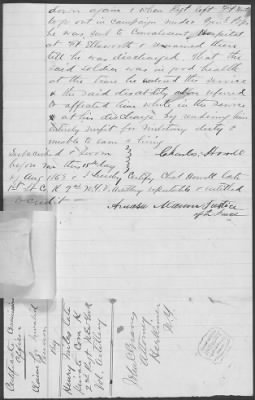 down again & when Regt left Fort
to go out in Campaign under Genl Pope
he was sent to Convalescent Hospital
at Ft Ellsworth & remained there
till he was discharged. That the
said soldier was in good health
at the time he entered the service
& the said disability
affected him while in the service
& at his discharge by rendering him
entirely unfit for military duty &
unable to earn a living
Subscribed & Sworn
before me this 15 day Charles Howell
of Aug 1863 & I hereby Certify Chas Howell late
1st Lt Co K 2nd N.Y. Artillery reputable & entitled
to credit
Amasa Mann Justice
of the Peace
Officer
Claim for Invalid
Pension
By
Henry late
Private Com K
2nd Regt N.Y. Vols
Artillery
John
Attorney
Herkimer
N.Y.